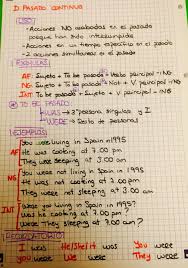 D. PASADO CONTINUO
USO
- Acciones NO acabadas en el pasado
porque han sido interrumpidas
- Acciones en un tiempo específico en el pasado
- 2 acciones simultáneas en el pasado
FORMULAS
AF) Sujeto + To be pasado + Verbo principal - ING
NG) Sujeto + To be pasado + Not + V. principal - ING
INT) To be pasado + Sujeto + V. principal - ING
TO BE PASADO
WAS → 3ª persona singular e I
WERE → Resto de personas
EJEMPLOS
You were living in Spain in 1995
AF) He was cooking at 7.00 pm
They were sleeping at 3.00 am
You were not living in Spain in 1995
NG) He was not cooking at 7.00 pm
They were not sleeping at 3.00 am
Were you living in Spain in 1995?
INT) Was he cooking at 7.00 pm?
Were they sleeping at 3.00 am?
I was He/She/it was You were
you were We were They were